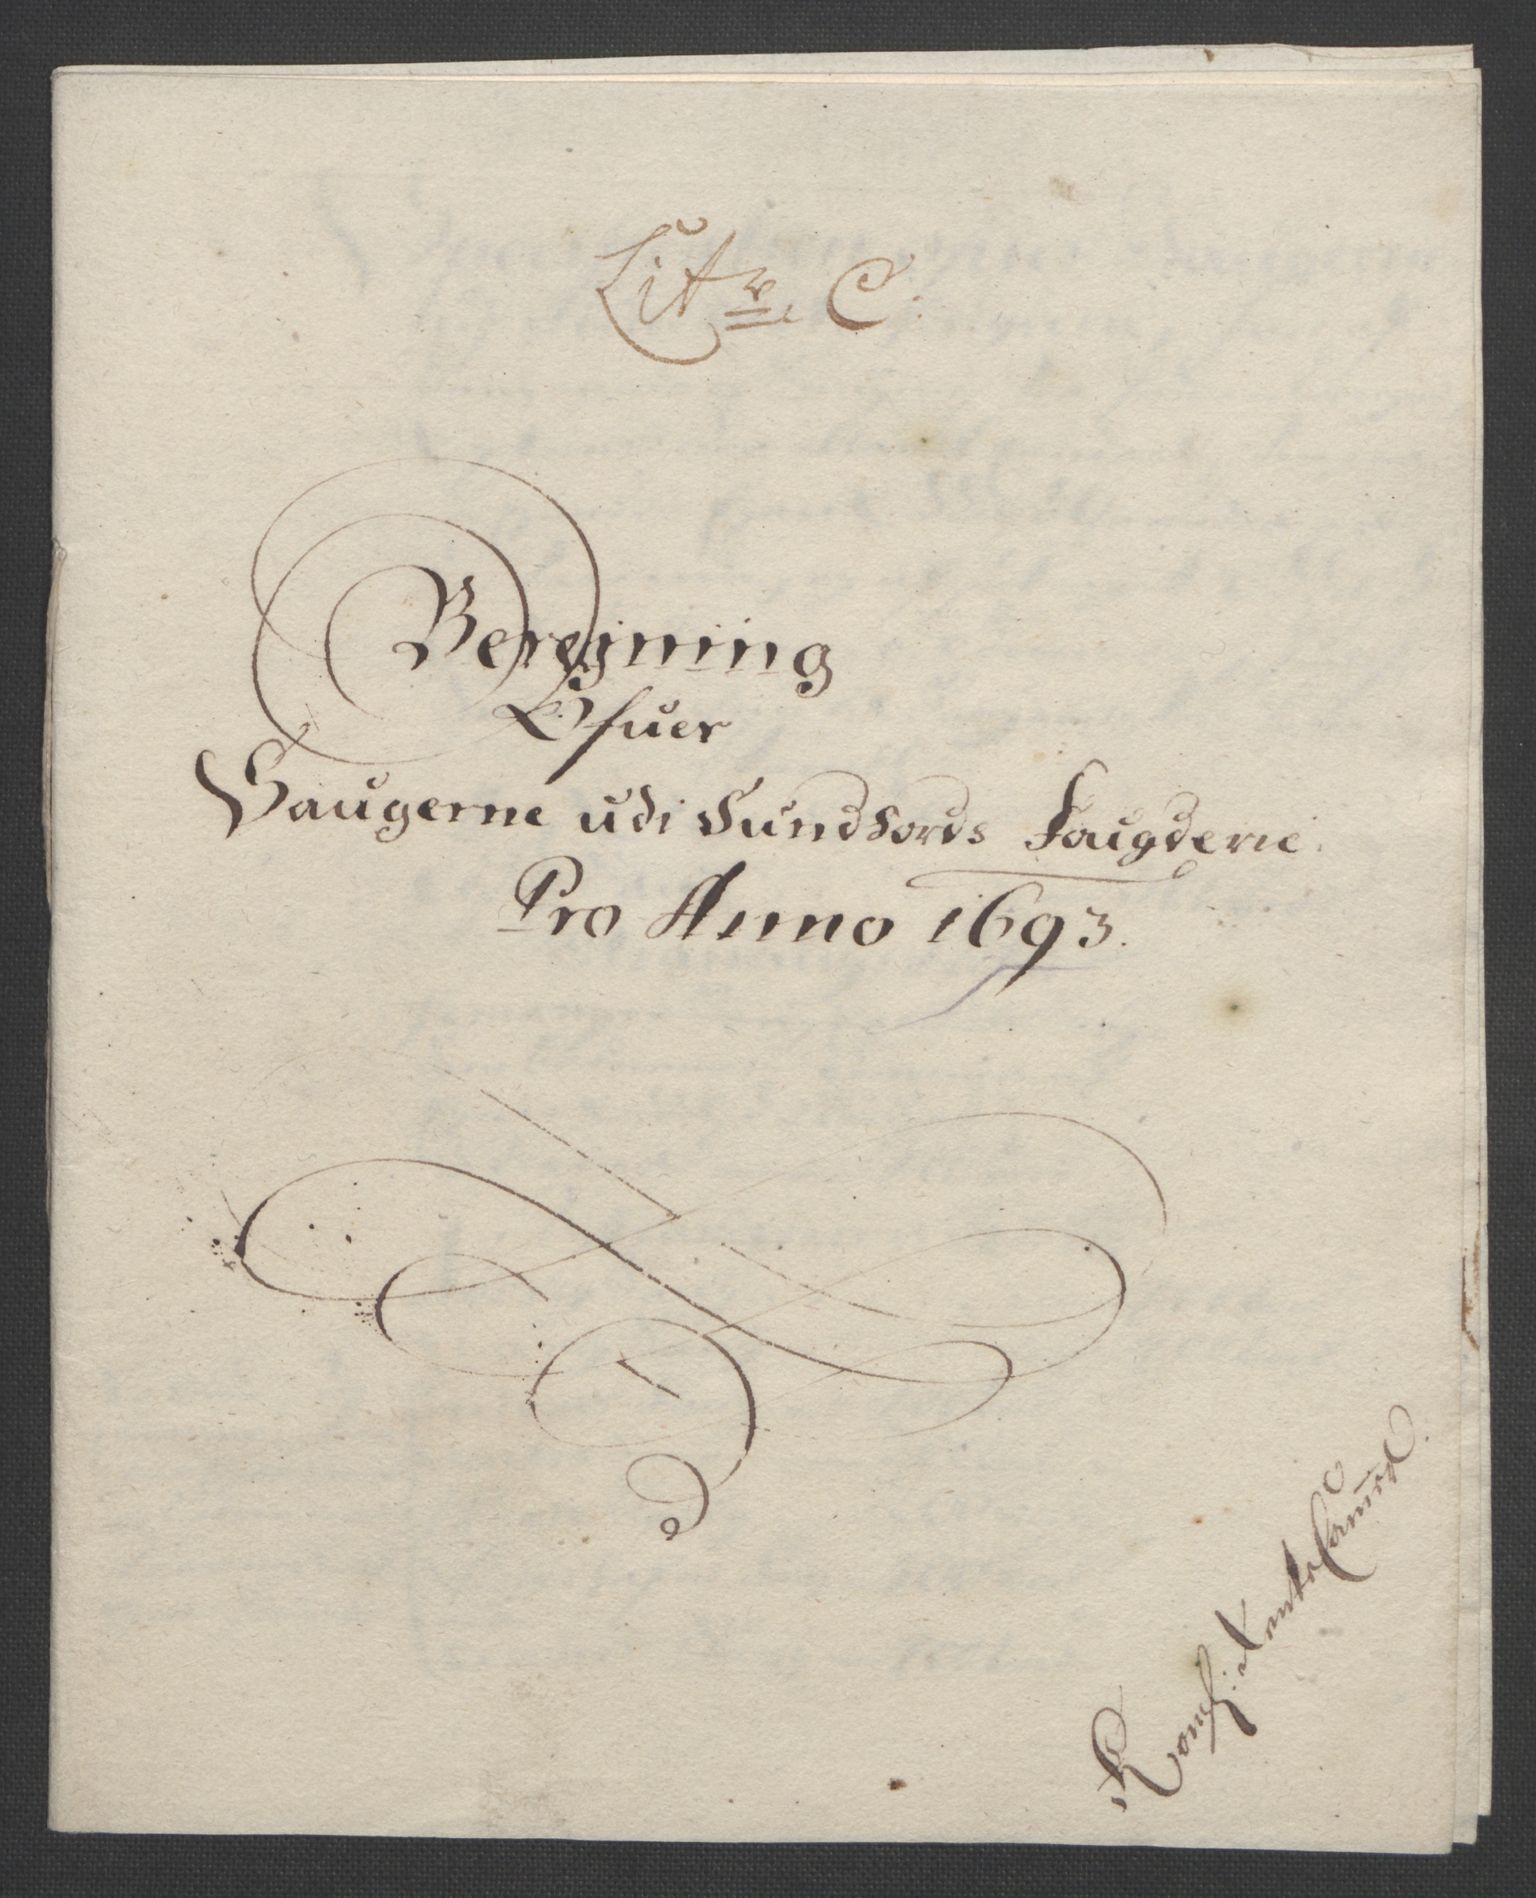 Litr C:
Beregning
Ofuer
Saugerne udi Sundfords Faugderie.
Pro Anno 1693.
Kongl: Rente Cammer.